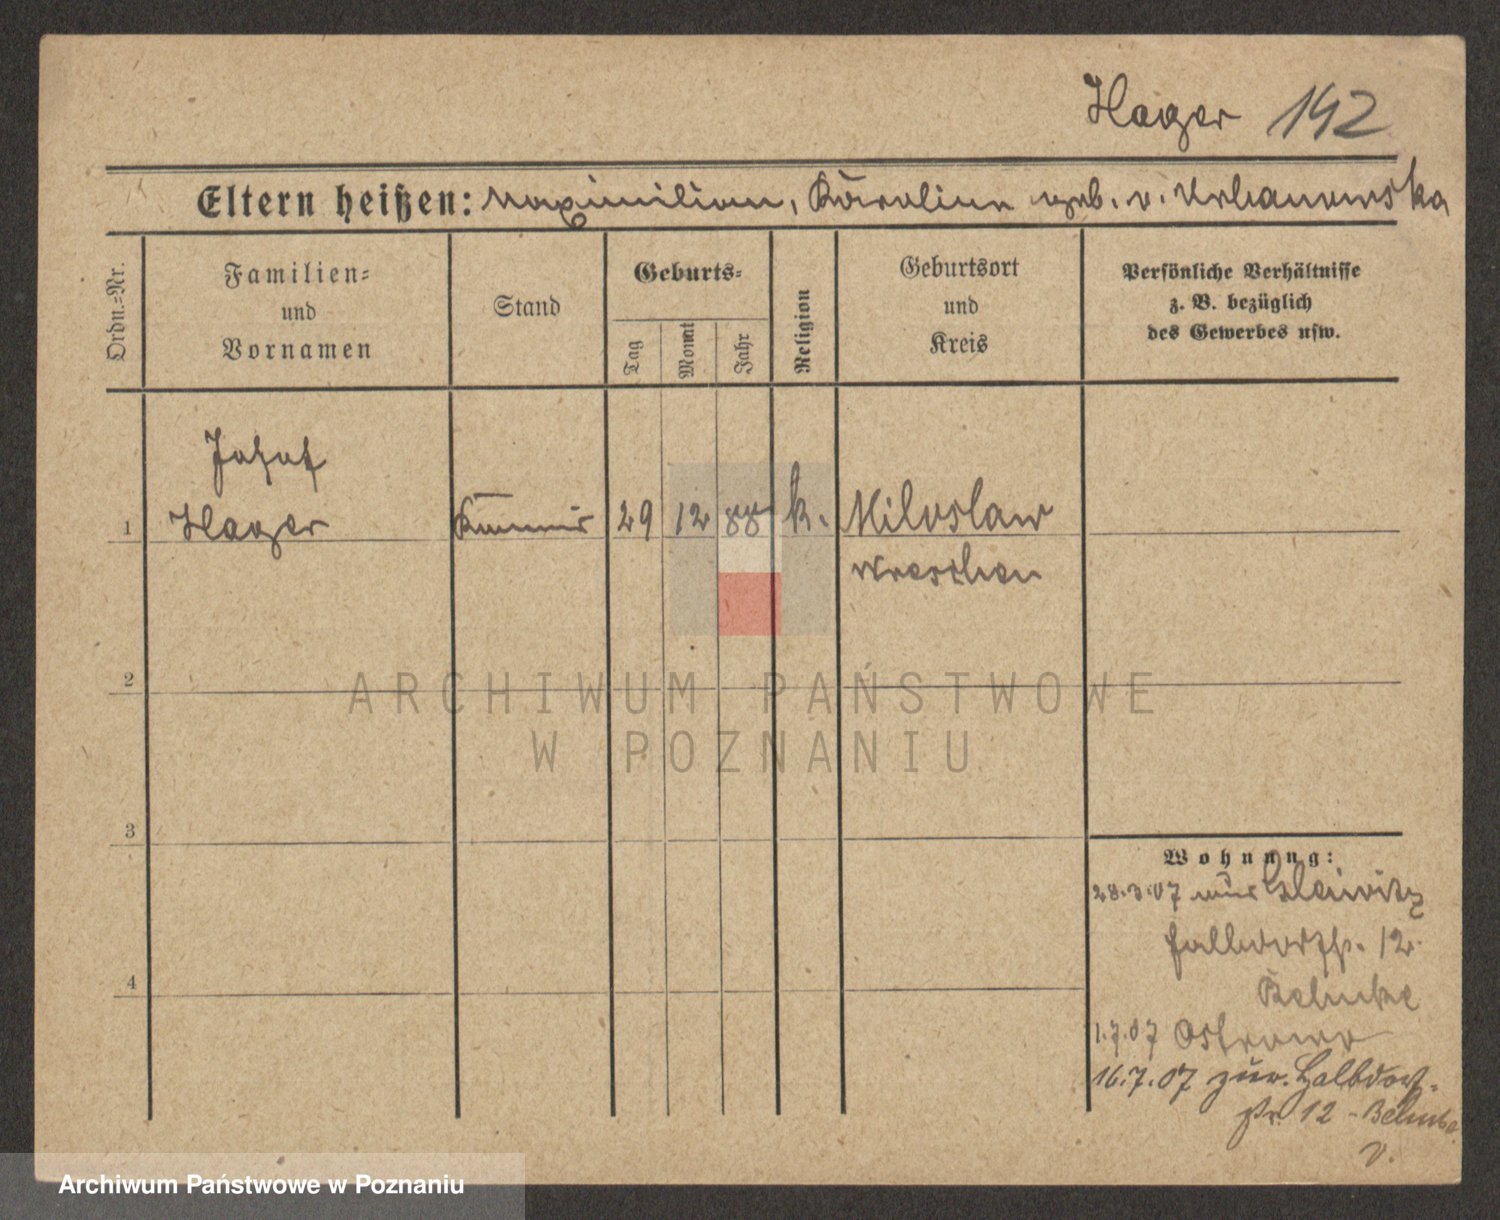 Hager 142
Eltern heißen: Maximilian, Karoline geb. v. Urbanowska
Ordn.=Nr.
Familien=
und
Vornamen
Stand
Geburts=
Tag
Monat
Jahr
Religion
Geburtsort
und
Kreis
Persönliche Verhältnisse
z. B. bezüglich
des Gewerbes usw.
Josef
1 Hager 29 12 88 k. Miloslaw
Wreschen
2
3
4
Wohnung:
28.3.07 aus Gleiwitz
Halbdorfstr. 12
1.7.07 Ostrowo
16.7.07 zur. Halbdorf-
str. 12 -
v.
ARCHIWUM PAŃSTWOWE
W POZNANIU
Archiwum Państwowe w Poznaniu